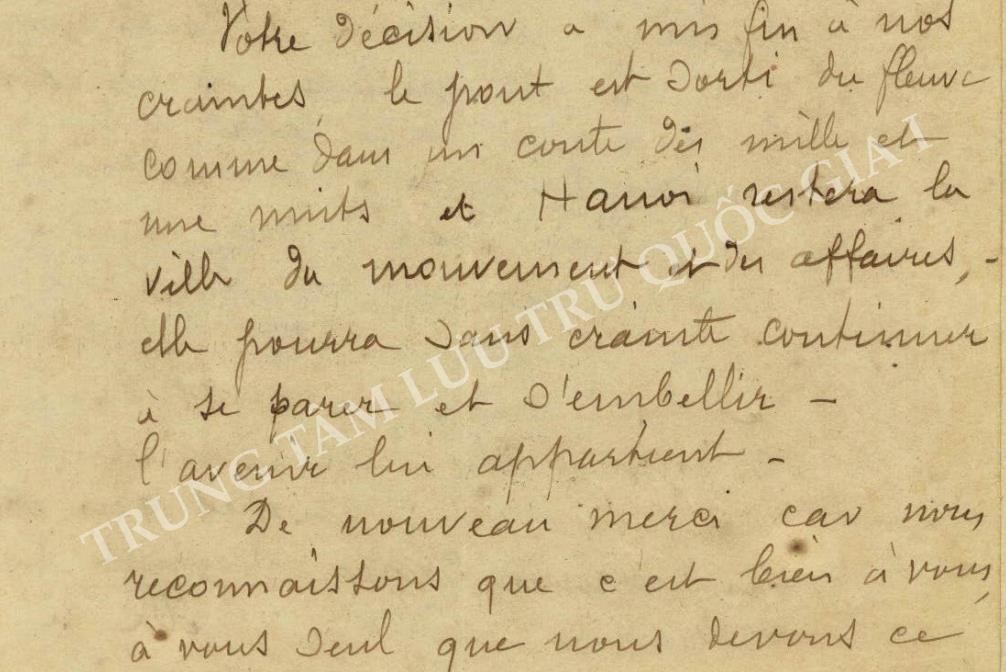 Votre décision a mis fin à nos
craintes, le pont est sorti du fleuve
comme dans un conte des mille et
une nuits et Hanoi restera la
ville du mouvement et des affaires, -
elle pourra sans crainte continuer
à se parer et s'embellir -
l'avenir lui appartient -
De nouveau merci car nous
reconnaissons que c'est bien à vous,
à vous seul que nous devons ce
TRUNG TÂM LƯU TRỮ QUỐC GIA I